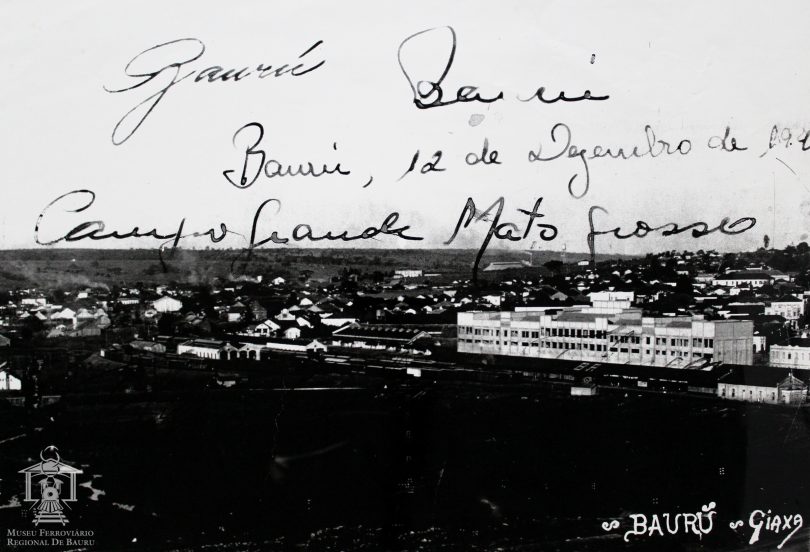 Baurú Bauru
Baurú, 12 de Dezembro de
Campo Grande Mato Grosso
MUSEU FERROVIÁRIO
REGIONAL DE BAURU
BAURU Giaxa